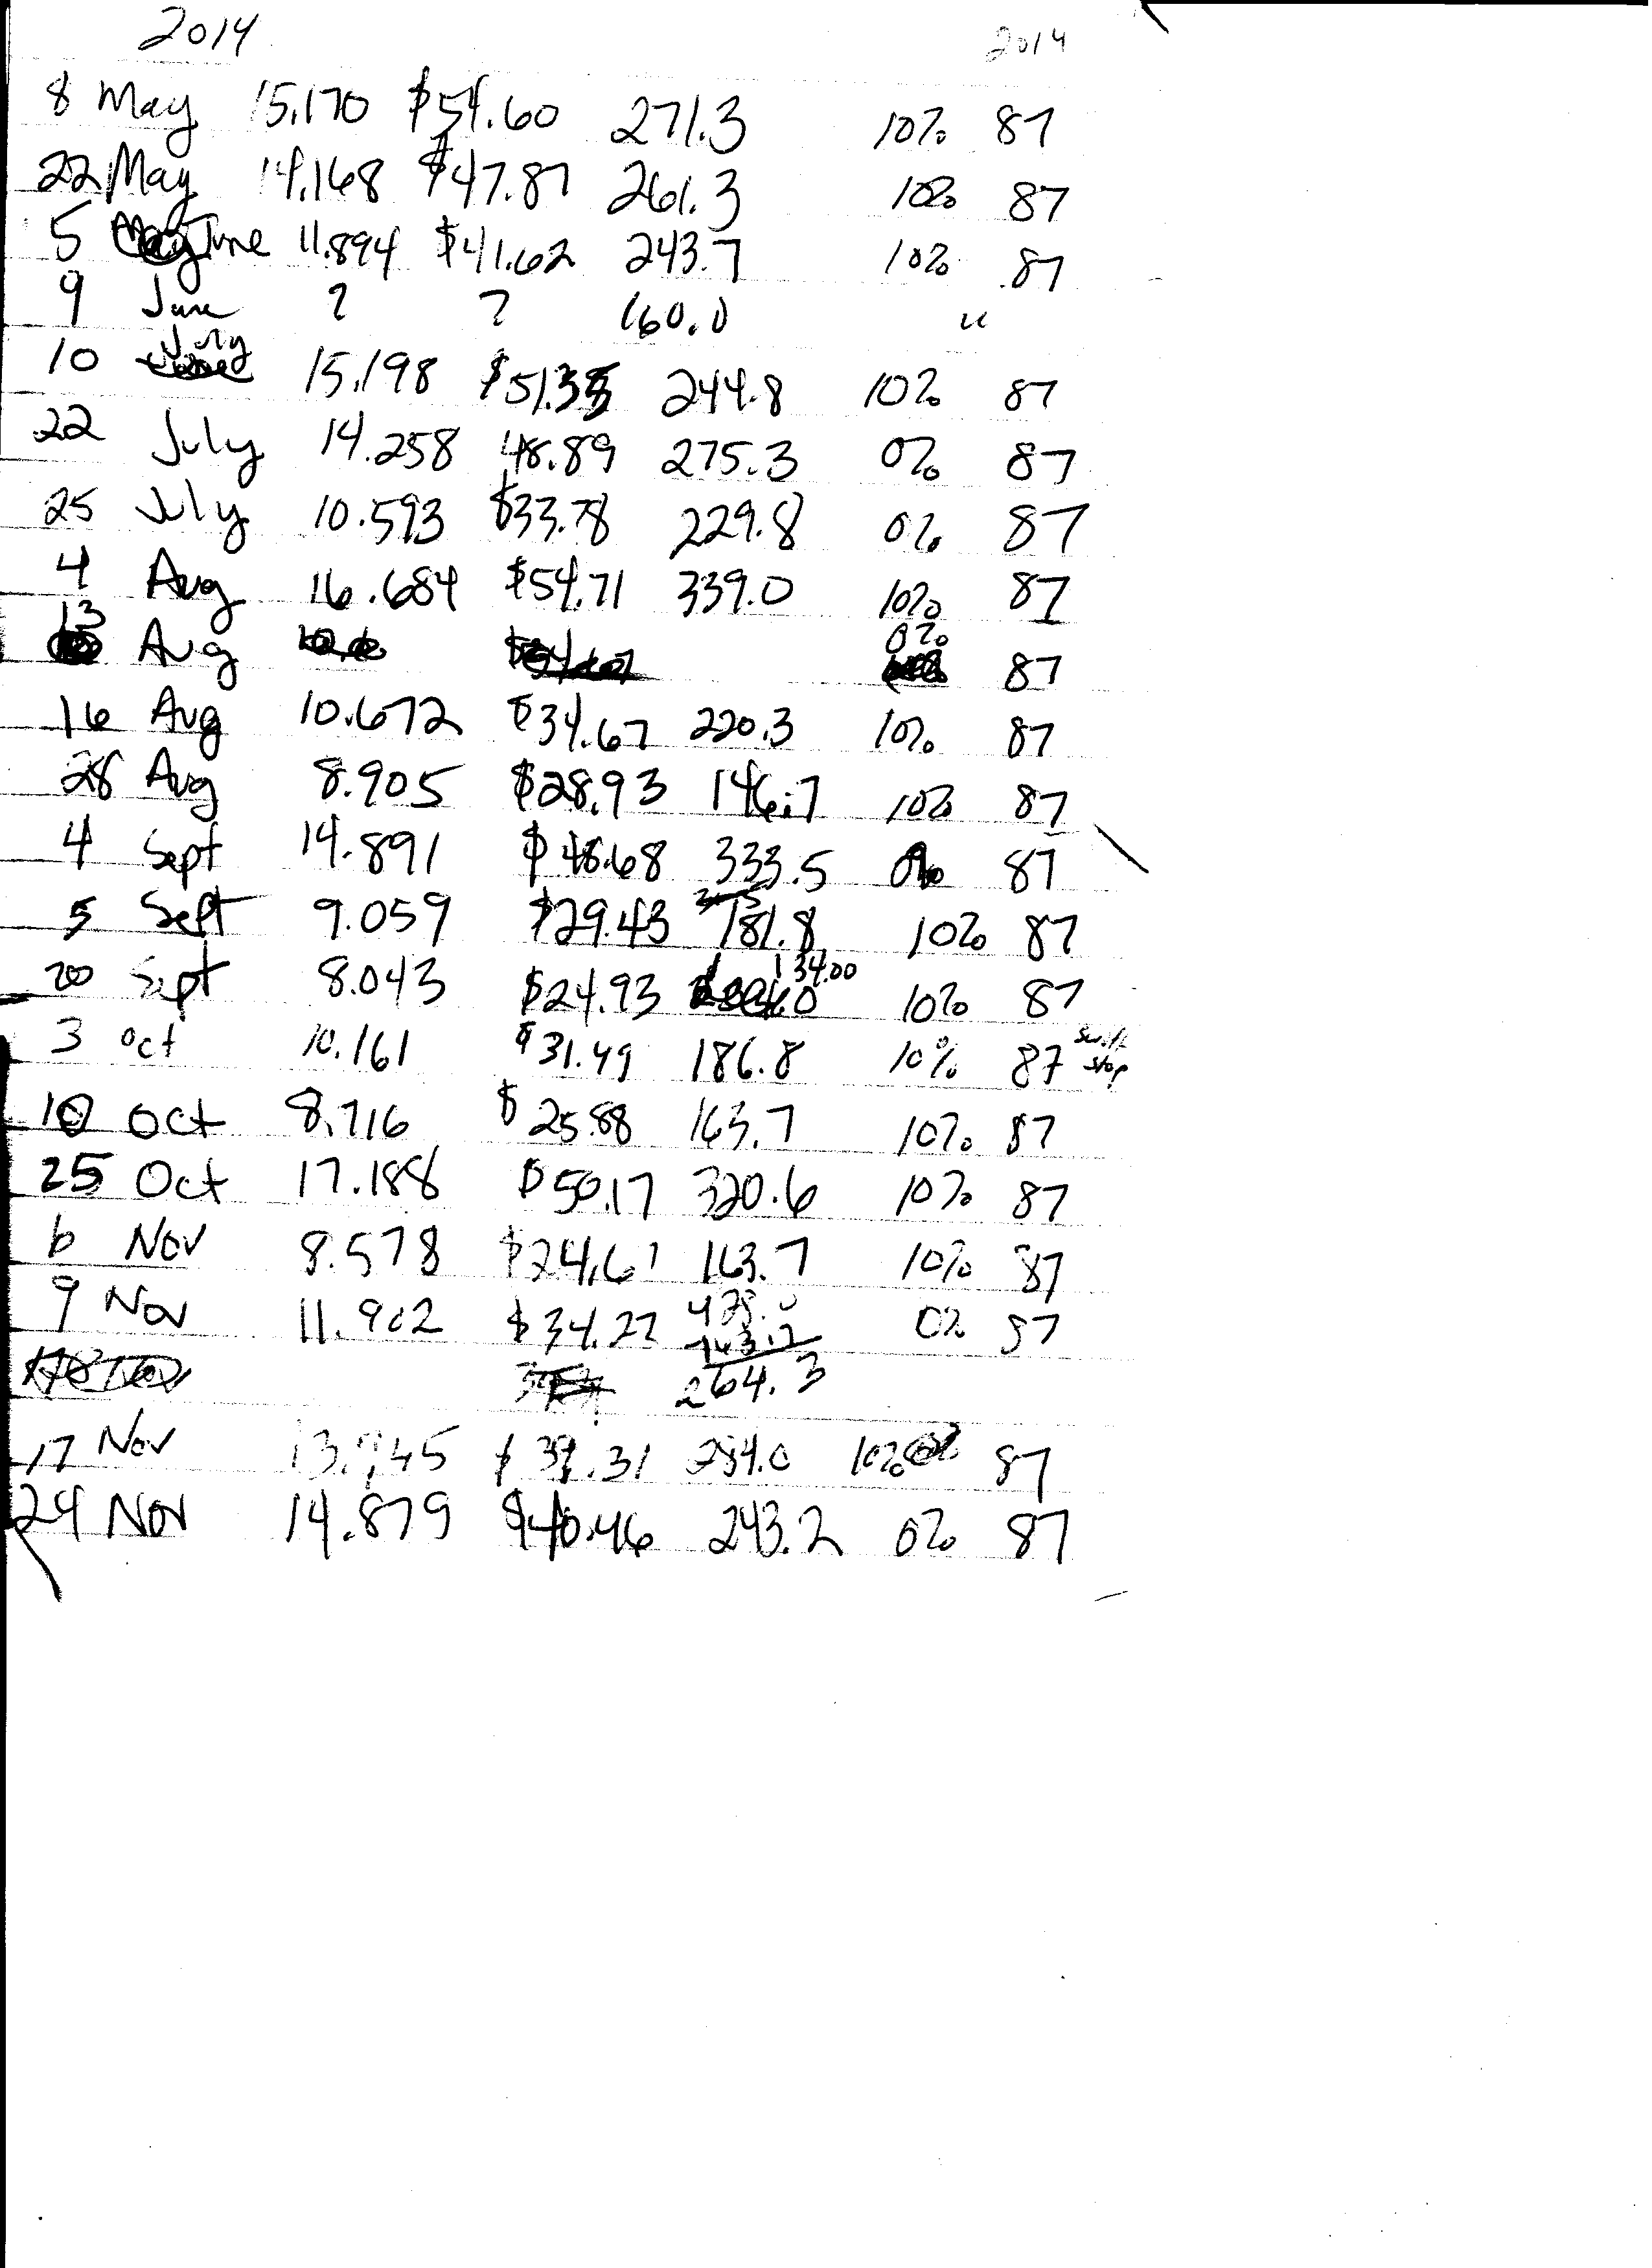 2014 2014
8 May 15.170 $54.60 271.3 10% 87
22 May 14.168 $47.87 261.3 10% 87
5 June 11.894 $41.62 243.7 10% 87
9 June ? ? 160.0 "
10 July 15.198 $51.35 244.8 10% 87
22 July 14.258 48.89 275.3 0% 87
25 July 10.593 $33.78 229.8 0% 87
4 Aug 16.684 $54.71 339.0 10% 87
13 Aug 0% 87
16 Aug 10.672 $34.67 220.3 10% 87
28 Aug 8.905 $28.93 146.7 10% 87
4 Sept 14.891 $48.68 333.5 0% 87
5 Sept 9.059 $29.43 181.8 10% 87
20 Sept 8.043 $24.93 134.00 10% 87
3 Oct 10.161 $31.49 186.8 10% 87 stop
10 Oct 8.716 $25.88 163.7 10% 87
25 Oct 17.188 $50.17 320.6 10% 87
6 Nov 8.578 $24.61 163.7 10% 87
9 Nov 11.902 $34.22 428.0 0% 87
264.3
17 Nov $39.31 10% 87
24 Nov 14.879 $40.46 243.2 0% 87